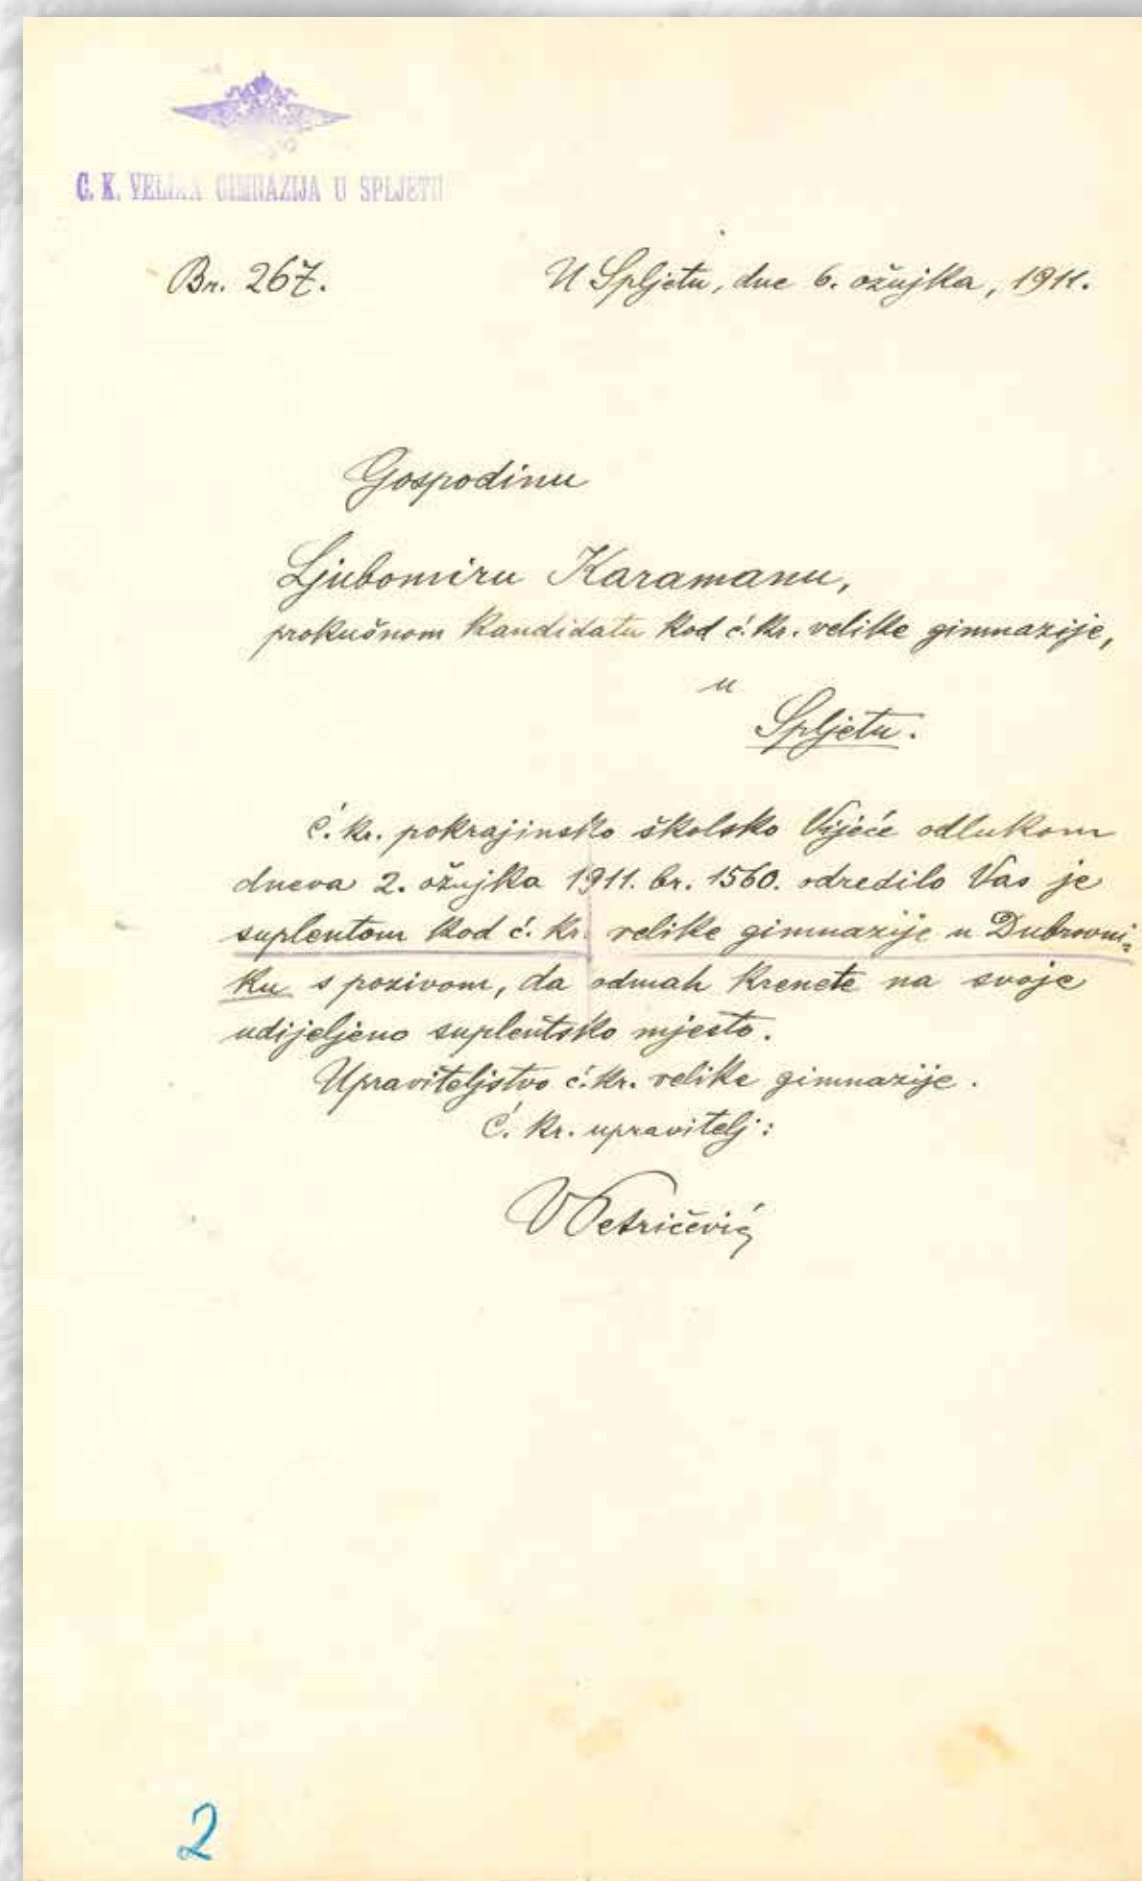 C. K. VELIKA GIMNAZIJA U SPLJETU
Br. 267.
U Spljetu, dne 6. ožujka, 1911.
Gospodinu
Ljubomiru Karamanu,
prokušnom kandidatu kod ć. kr. velike gimnazije,
u
Spljetu.
Ć. kr. pokrajinsko školsko Vijeće odlukom
dneva 2. ožujka 1911. br. 1560. odredilo Vas je
suplentom kod ć. kr. velike gimnazije u Dubrovni-
ku s pozivom, da odmah krenete na svoje
udijeljeno suplentsko mjesto.
Upraviteljstvo ć. kr. velike gimnazije.
Ć. kr. upravitelj:
V Petričević
2